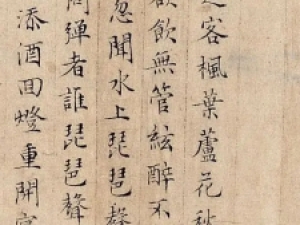 客楓葉蘆花秋
欲飲無管絃醉不
忽聞水上琵琶聲
問彈者誰琵琶聲
添酒回燈重開宴